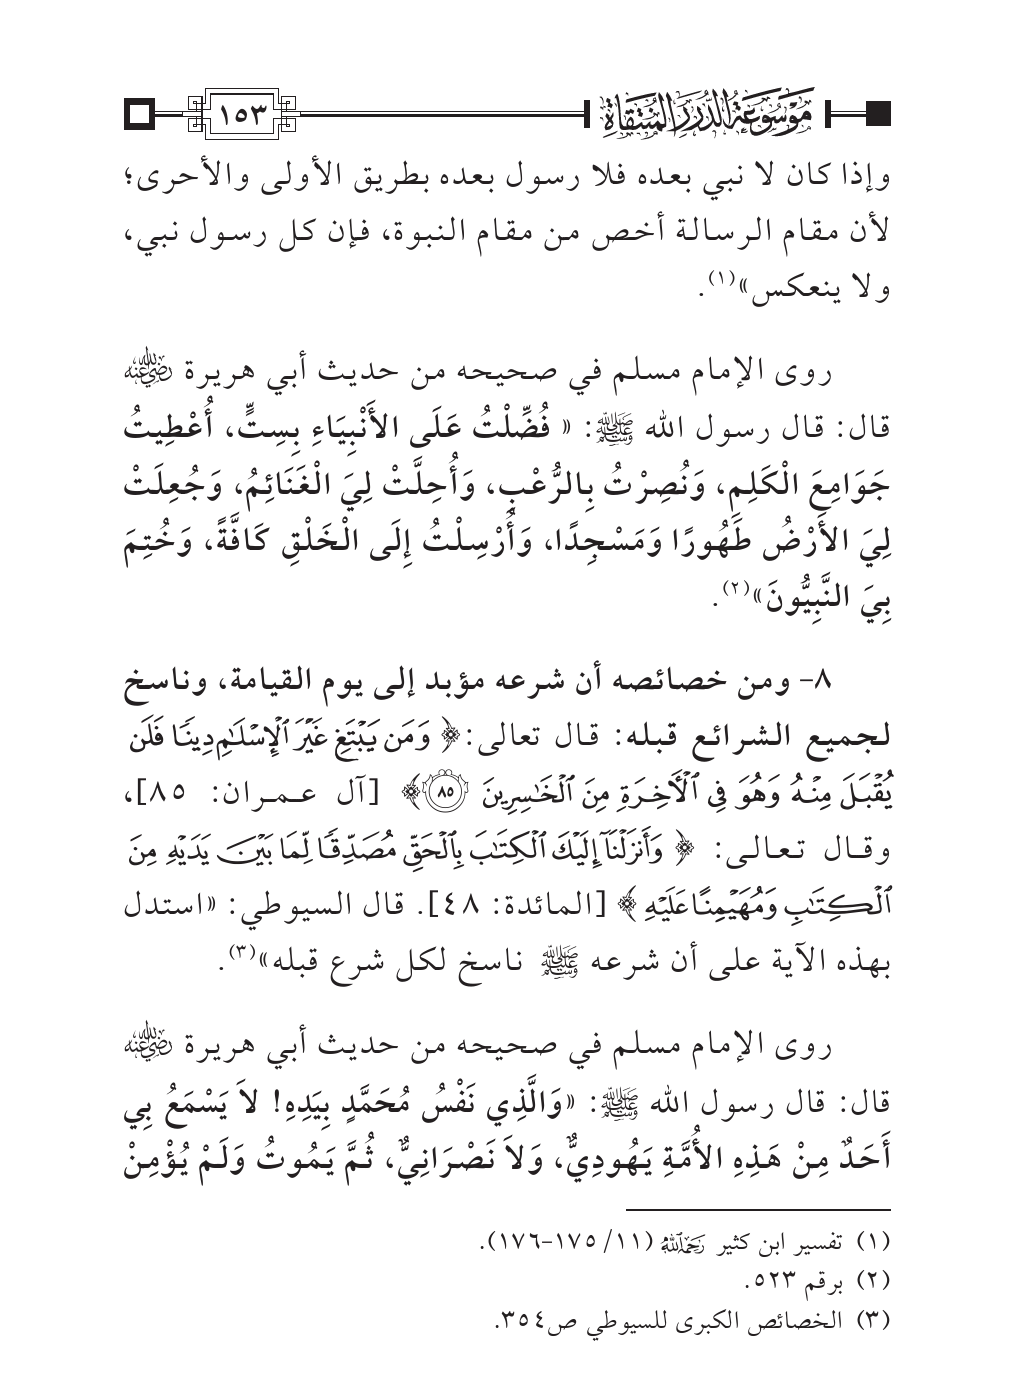 موسوعة الدرر المنتقاة
١٥٣
وإذا كان لا نبي بعده فلا رسول بعده بطريق الأولى والأحرى؛
لأن مقام الرسالة أخص من مقام النبوة، فإن كل رسول نبي،
ولا ينعكس»(١).
روى الإمام مسلم في صحيحه من حديث أبي هريرة رضي الله عنه
قال: قال رسول الله ﷺ: «فُضِّلْتُ عَلَى الأَنْبِيَاءِ بِسِتٍّ، أُعْطِيتُ
جَوَامِعَ الْكَلِمِ، وَنُصِرْتُ بِالرُّعْبِ، وَأُحِلَّتْ لِيَ الْغَنَائِمُ، وَجُعِلَتْ
لِيَ الأَرْضُ طَهُورًا وَمَسْجِدًا، وَأُرْسِلْتُ إِلَى الْخَلْقِ كَافَّةً، وَخُتِمَ
بِيَ النَّبِيُّونَ»(٢).
٨- ومن خصائصه أن شرعه مؤبد إلى يوم القيامة، وناسخ
لجميع الشرائع قبله: قال تعالى: ﴿وَمَن يَبْتَغِ غَيْرَ ٱلْإِسْلَٰمِ دِينًا فَلَن
يُقْبَلَ مِنْهُ وَهُوَ فِي ٱلْأَخِرَةِ مِنَ ٱلْخَٰسِرِينَ ٨٥﴾ [آل عمران: ٨٥]،
وقال تعالى: ﴿وَأَنزَلْنَآ إِلَيْكَ ٱلْكِتَٰبَ بِٱلْحَقِّ مُصَدِّقًا لِّمَا بَيْنَ يَدَيْهِ مِنَ
ٱلْكِتَٰبِ وَمُهَيْمِنًا عَلَيْهِ﴾ [المائدة: ٤٨]. قال السيوطي: «استدل
بهذه الآية على أن شرعه ﷺ ناسخ لكل شرع قبله»(٣).
روى الإمام مسلم في صحيحه من حديث أبي هريرة رضي الله عنه
قال: قال رسول الله ﷺ: «وَالَّذِي نَفْسُ مُحَمَّدٍ بِيَدِهِ! لاَ يَسْمَعُ بِي
أَحَدٌ مِنْ هَذِهِ الأُمَّةِ يَهُودِيٌّ، وَلاَ نَصْرَانِيٌّ، ثُمَّ يَمُوتُ وَلَمْ يُؤْمِنْ
(١) تفسير ابن كثير رحمه الله (١١/ ١٧٥-١٧٦).
(٢) برقم ٥٢٣.
(٣) الخصائص الكبرى للسيوطي ص٣٥٤.